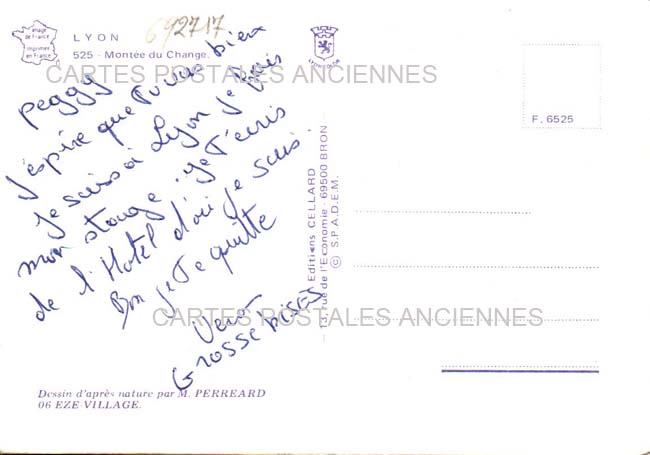 Image
de France
Imprimée
en France
LYON
692717
525 - Montée du Change.
LYONCOLOR
CARTES POSTALES ANCIENNES
F. 6525
Peggy
J'espire que Tu vas bien
Je suis à Lyon je fais
mon stage. Je T'ecris
de l'Hotel d'où je suis.
Bon je Te quitte
Grosse bises
Editions CELLARD
13, rue de l'Economie - 69500 BRON
© S.P.A.D.E.M.
CARTES POSTALES ANCIENNES
Dessin d'après nature par M. PERREARD
06 EZE-VILLAGE.